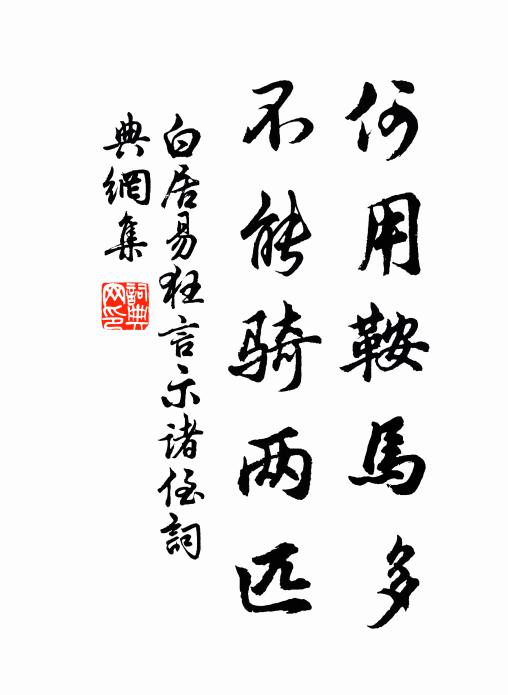 何用鞍馬多
不能骑两匹
白居易狂言示诸侄詞
典網集
詞典
网印